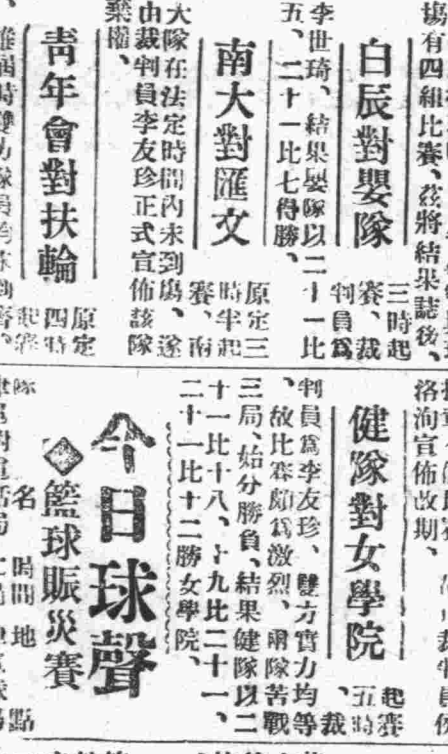 塲有四組比賽、茲將結果誌後、
白辰對嬰隊
三時起
賽、裁
判員爲
李世琦、結果嬰隊以二十一比
五、二十一比七得勝、
南大對匯文
原定三
時半起
賽、南
大隊在法定時間內未到塲、遂
由裁判員李友珍正式宣佈該隊
棄權、
靑年會對扶輪
原定
四時
起賽
洛洵宣佈改期、
健隊對女學院
起賽
五時
、裁
判員爲李友珍、雙方實力均等
、故比賽頗爲激烈、兩隊苦戰
三局、始分勝負、結果健隊以二
十一比十八、十九比二十一、
二十一比十二勝女學院、
今日球聲
◇籃球賑災賽
隊名 時間 地點